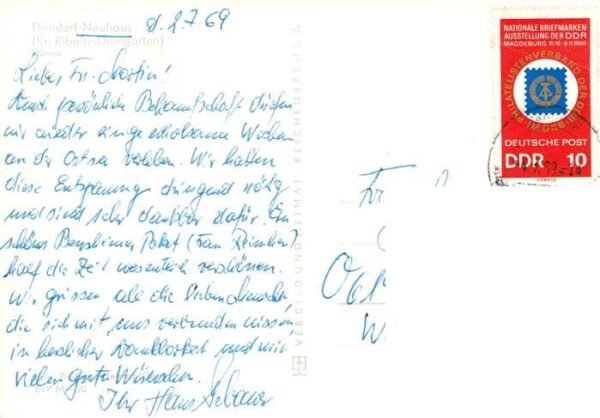 Dündorf-Neuhaus
(Kr. Ribnitz-Damgarten)
d. 2.7.69
Lieber Fr. Martin!
Durch persönliche Bekanntschaft dürfen
wir wieder einige erholsame Wochen
an der Ostsee verleben. Wir hatten
diese Entspannung dringend nötig
und sind sehr dankbar dafür. Ein
schönes Bensheimer Paket (Frau)
half die Zeit wesentlich verschönen.
Wir grüssen all die lieben Menschen,
die sich mit uns verbunden wissen,
in herzlicher Dankbarkeit und mit
vielen guten Wünschen.
Ihr Hans
VEB BILD UND HEIMAT REICHENBACH I. V.
NATIONALE BRIEFMARKEN
AUSSTELLUNG DER DDR
MAGDEBURG 31.10.-9.11.1969
PHILATELISTENVERBAND DER DDR IM DKB
DEUTSCHE POST
DDR 10
Fr
W